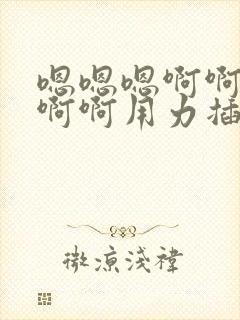 嗯嗯嗯啊啊
啊啊用力插
微凉浅禕